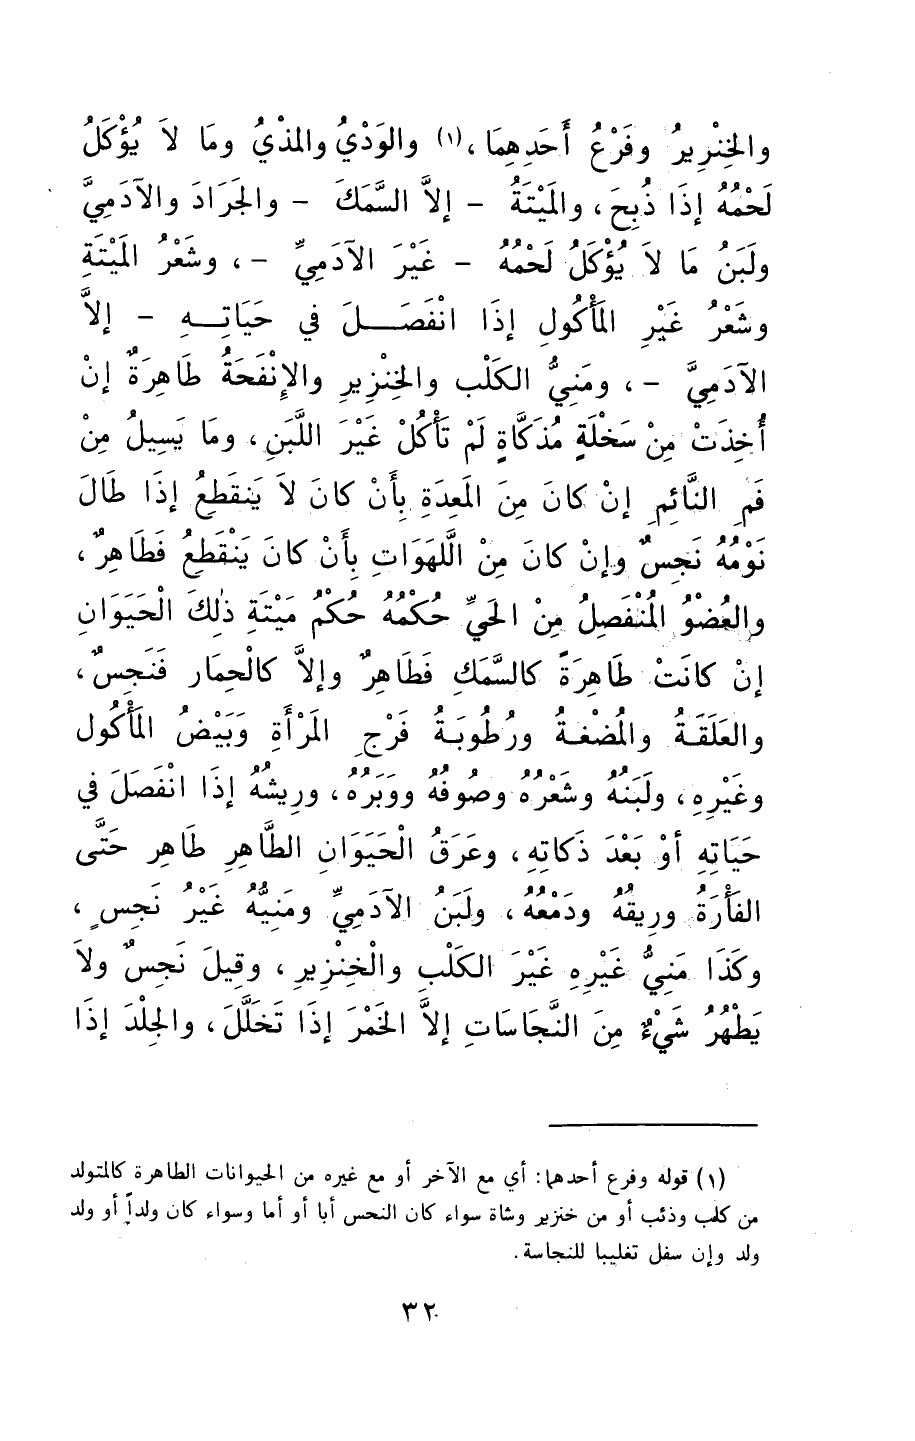 والخِنْزِيرُ وفَرْعُ أَحَدِهِمَا،(١) والوَدْيُ والمذْيُ ومَا لاَ يُؤْكَلُ
لَحْمُهُ إذَا ذُبِحَ، والمَيْتَةُ - إلاَّ السَّمَكَ - والجَرَادَ والآدَمِيَّ
ولَبَنُ مَا لاَ يُؤْكَلُ لَحْمُهُ - غَيْرَ الآدَمِيِّ -، وشَعْرُ المَيْتَةِ
وشَعْرُ غَيْرِ المَأْكُولِ إذَا انْفَصَـــلَ في حَيَاتِـــهِ - إلاَّ
الآدَمِيَّ -، ومَنِيُّ الكَلْبِ والخِنْزِيرِ والإِنْفَحَةُ طَاهِرَةٌ إنْ
أُخِذَتْ مِنْ سَخْلَةٍ مُذَكَّاةٍ لَمْ تَأْكُلْ غَيْرَ اللَّبَنِ، ومَا يَسِيلُ مِنْ
فَمِ النَّائِمِ إنْ كانَ مِنَ المَعِدَةِ بِأَنْ كانَ لاَ يَنقَطِعُ إذَا طَالَ
نَوْمُهُ نَجِسٌ وإنْ كانَ مِنْ الَّلهَوَاتِ بِأَنْ كانَ يَنْقَطِعُ فَطَاهِرٌ،
والعُضْوُ المُنْفَصِلُ مِنْ الحَيِّ حُكْمُهُ حُكْمُ مَيْتَةِ ذٰلِكَ الْحَيَوَانِ
إنْ كانَتْ طَاهِرَةً كالسَّمَكِ فَطَاهِرٌ وإلاَّ كالْحِمَارِ فَنَجِسٌ،
والعَلَقَـةُ والمُضْغـةُ ورُطُوبَـةُ فَرْجِ المَرْأَةِ وَبَيْضُ المَأْكُول
وغَيْرِهِ، ولَبَنُهُ وشَعْرُهُ وصُوفُهُ ووَبَرُهُ، وَرِيشُهُ إذَا انْفَصَلَ في
حَيَاتِهِ أوْ بَعْدَ ذَكاتِهِ، وعَرَقُ الْحَيَوَانِ الطَّاهِرِ طَاهِر حَتَّى
الفَأْرَةُ ورِيقُهُ ودَمْعُهُ، ولَبَنُ الآدَمِيِّ ومَنِيُّهُ غَيْرُ نَجِسٍ،
وكَذَا مَنِيُّ غَيْرِهِ غَيْرَ الكَلْبِ والْخِنْزِيرِ، وقِيلَ نَجِسٌ ولاَ
يَطْهُرُ شَيْءٌ مِنَ النَّجَاسَاتِ إلاَّ الخَمْرَ إذَا تَخَلَّلَ، والجِلْدَ إذَا
(١) قوله وفرع أحدهما: أي مع الآخر أو مع غيره من الحيوانات الطاهرة كالمتولد
من كلب وذئب أو من خنزير وشاة سواء كان النحس أبا أو أما وسواء كان ولداً أو ولد
ولد وإن سفل تغليبا للنجاسة.
٣٢